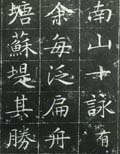 南山十詠有
余每泛扁舟
塘蘇堤其勝